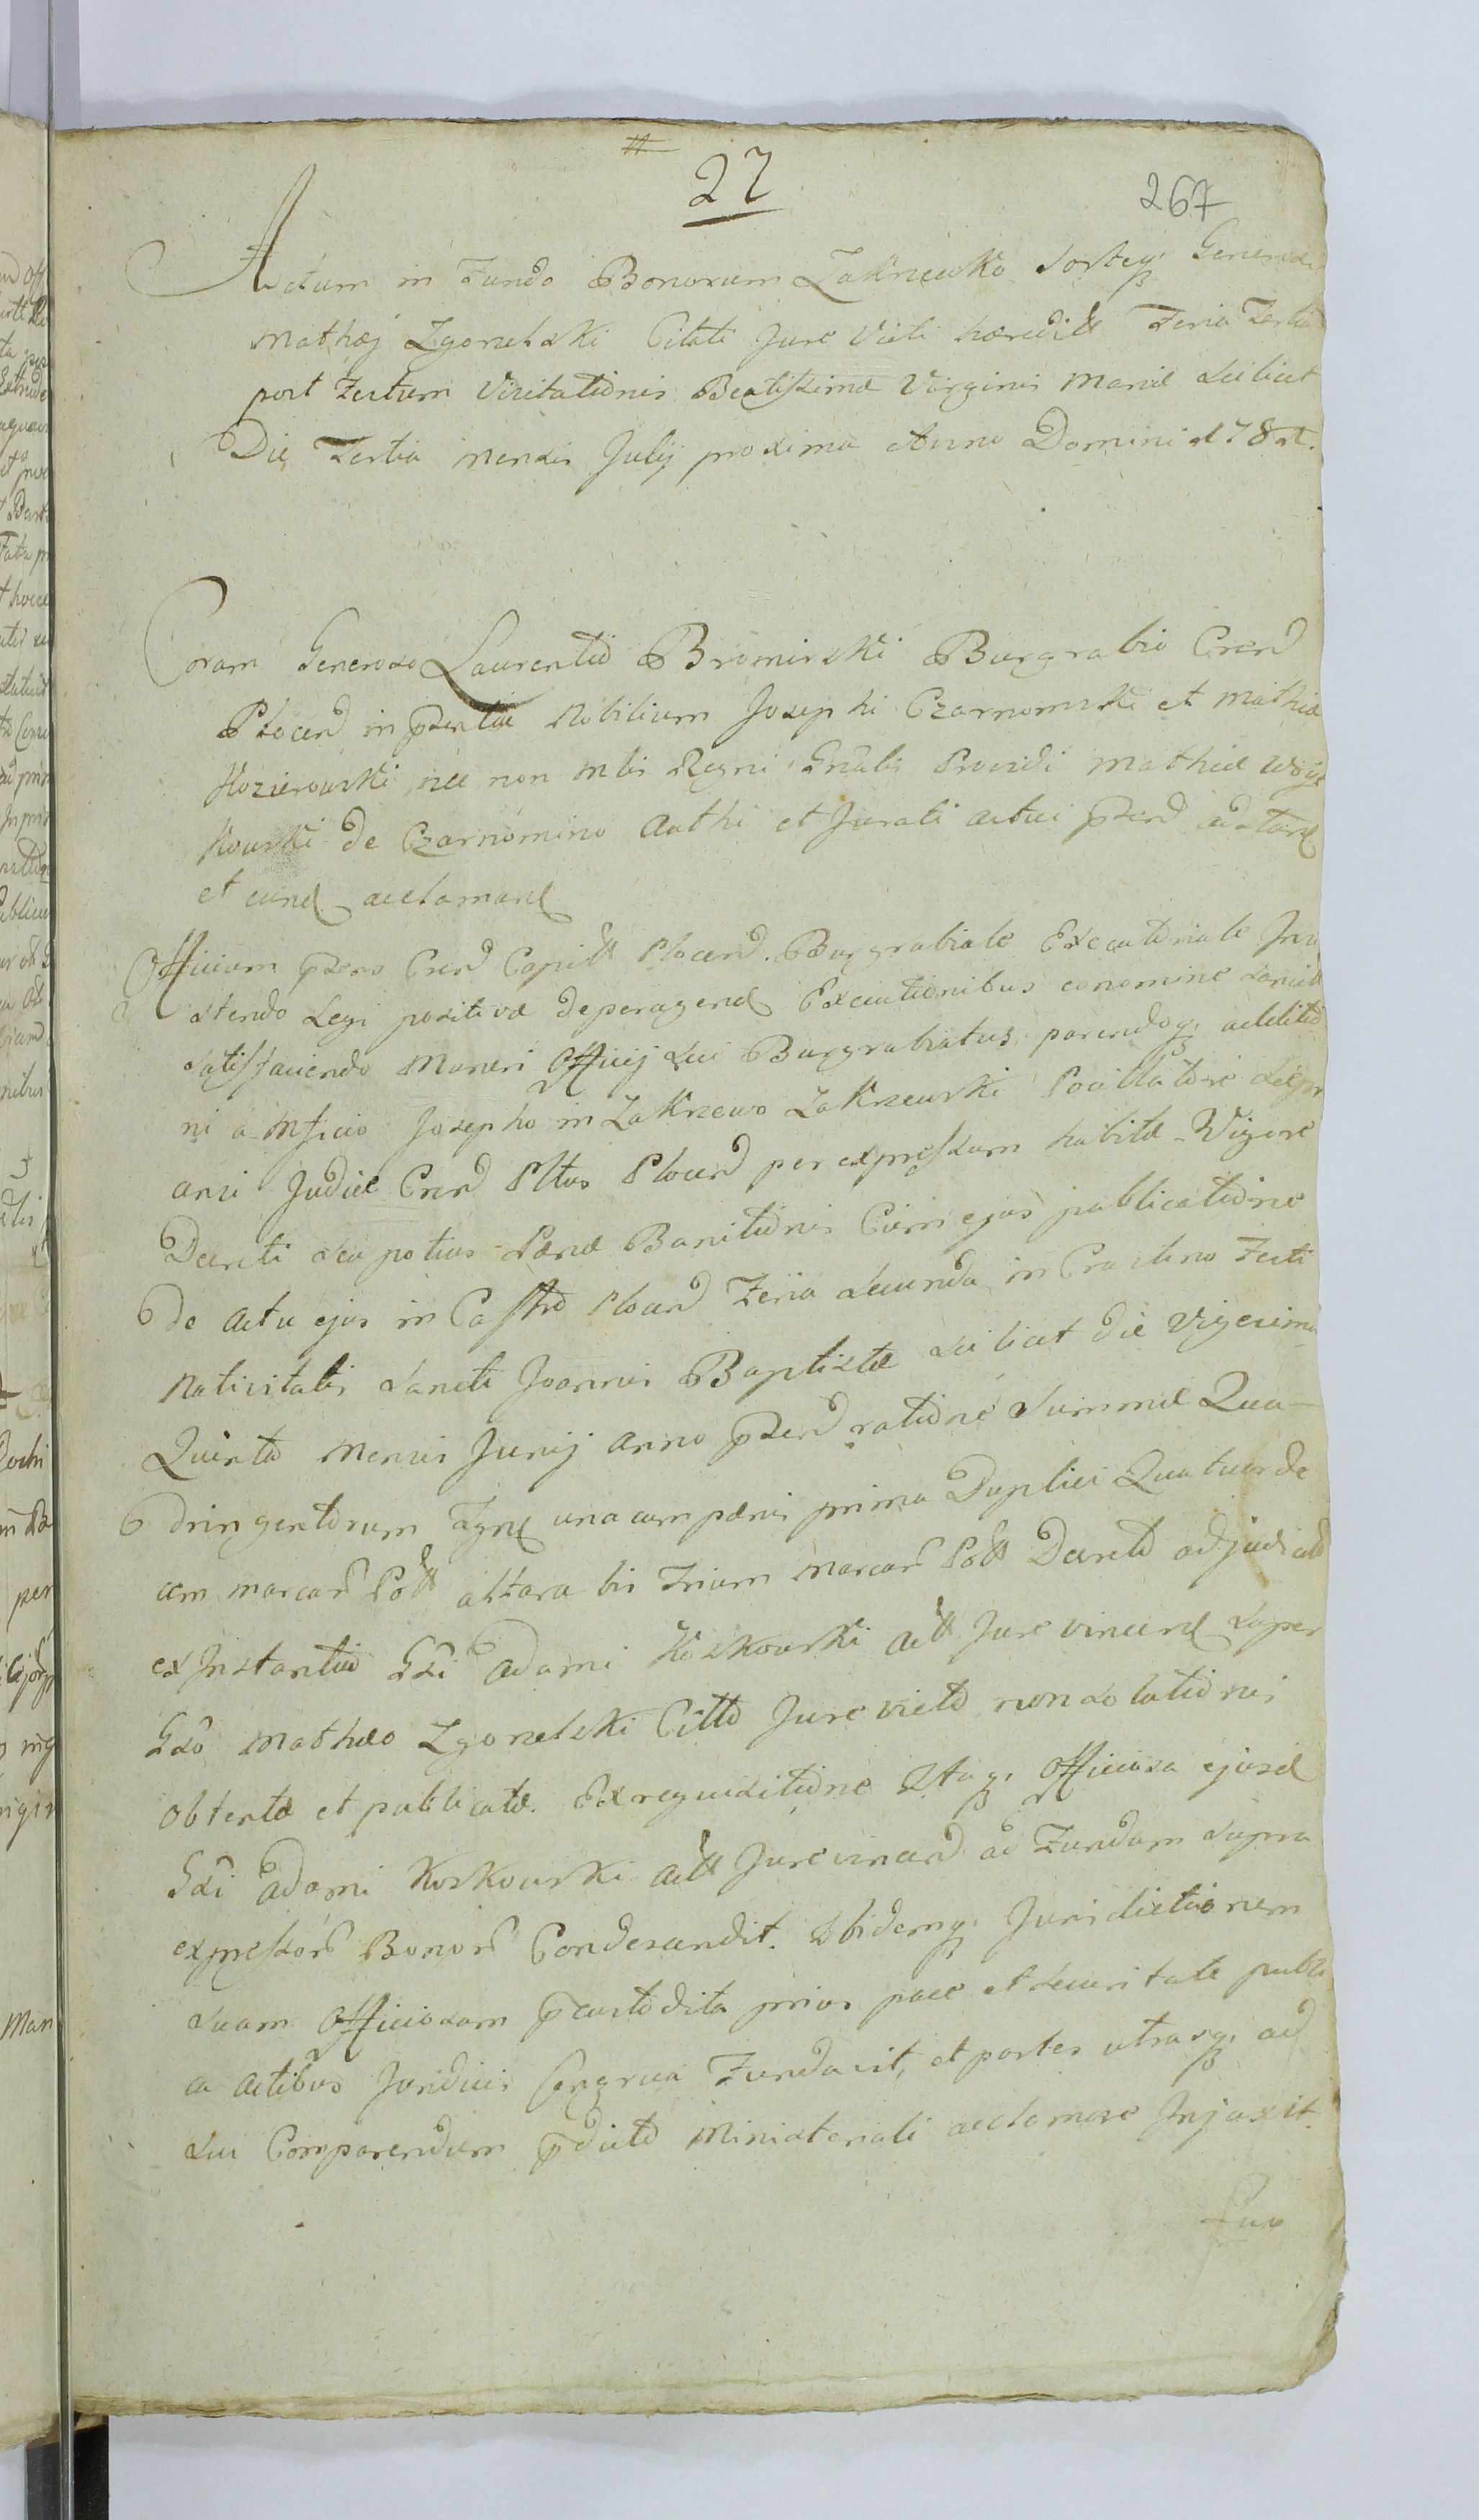 27
267
Actum in Fundo Bonorum Zakrzewko Sortisq; Generosi
Mathæj Zgorzelski Citati Jure Victi hæredit Feria Tertia
post Festum Visitationis Beatissimæ Virginis Mariæ Scilicet
Die Tertia mensis Julij proxima Anno Domini 178
Coram Generoso Laurentio Bromirski Burgrabio Cren
Plocen in psentia Nobilium Josephi Czarnomski et Mathiæ
Kozierowski, nec non Mlis Regni Gnalis Providi Mathiæ Woy
kowski de Czarnomino Authi et Jurati actui psen adstan
et eund acclaman
Officium psens Cren Capitt Plocen. Burgrabiale Executoriale In
stendo Legi positivæ de peragend Executionibus eonomine Sancitt
Satisfaciendo Muneri Officij Sui Burgrabiatus, parendoq; additio
ni a Mfico Josepho in Zakrzewo Zakrzewski Pocillatore Sierpc
ensi Judice Cren Pltus Plocen per expressum habitæ Vigore
Decreti Seu potius Pænæ Banitionis Cum ejus publicatione
de Actu ejus in Castro Plocen Feria Secunda in Crastino Festi
Nativitatis Sancti Joannis Baptistæ Scilicet die Vigesima
Quinta Mensis Junij Anno psen ratione Summæ Qua-
dringentorum flgne una cum pænis prima Duplici Quatuorde
cem marcar Polt altera bis Trium Marcar Polt Decreto adjudicat
ex Instantia Gsi Adami Koskowski Att Jure vincen Super
Gso Mathæo Zgorzelski Citto Jure victo non Solutionis
obtentæ et publicatæ. Ex requisitione Itaq; Officiosa ejusd
Gsi Adami Koskowski Att Jure vincen ad Fundum Supra
expressor Bonor Condescendit. Ibidemq; Jurisdictionem
Suam Officiosam pcustodita prius pace et Securitate publi
ca Actibus Juridicis Congrua Fundavit, et partes utrasq; ad
Sui Comparendum pdicto Ministeriali acclamare Injunxit.
Quo